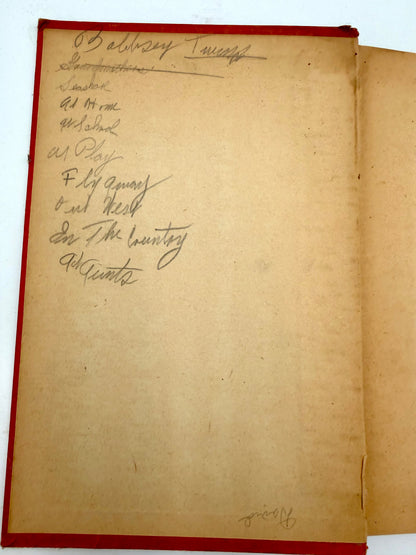 Bobbsey Twins
Seashore
At Home
At School
At Play
Fly away
Out West
In The Country
At Aunts
David